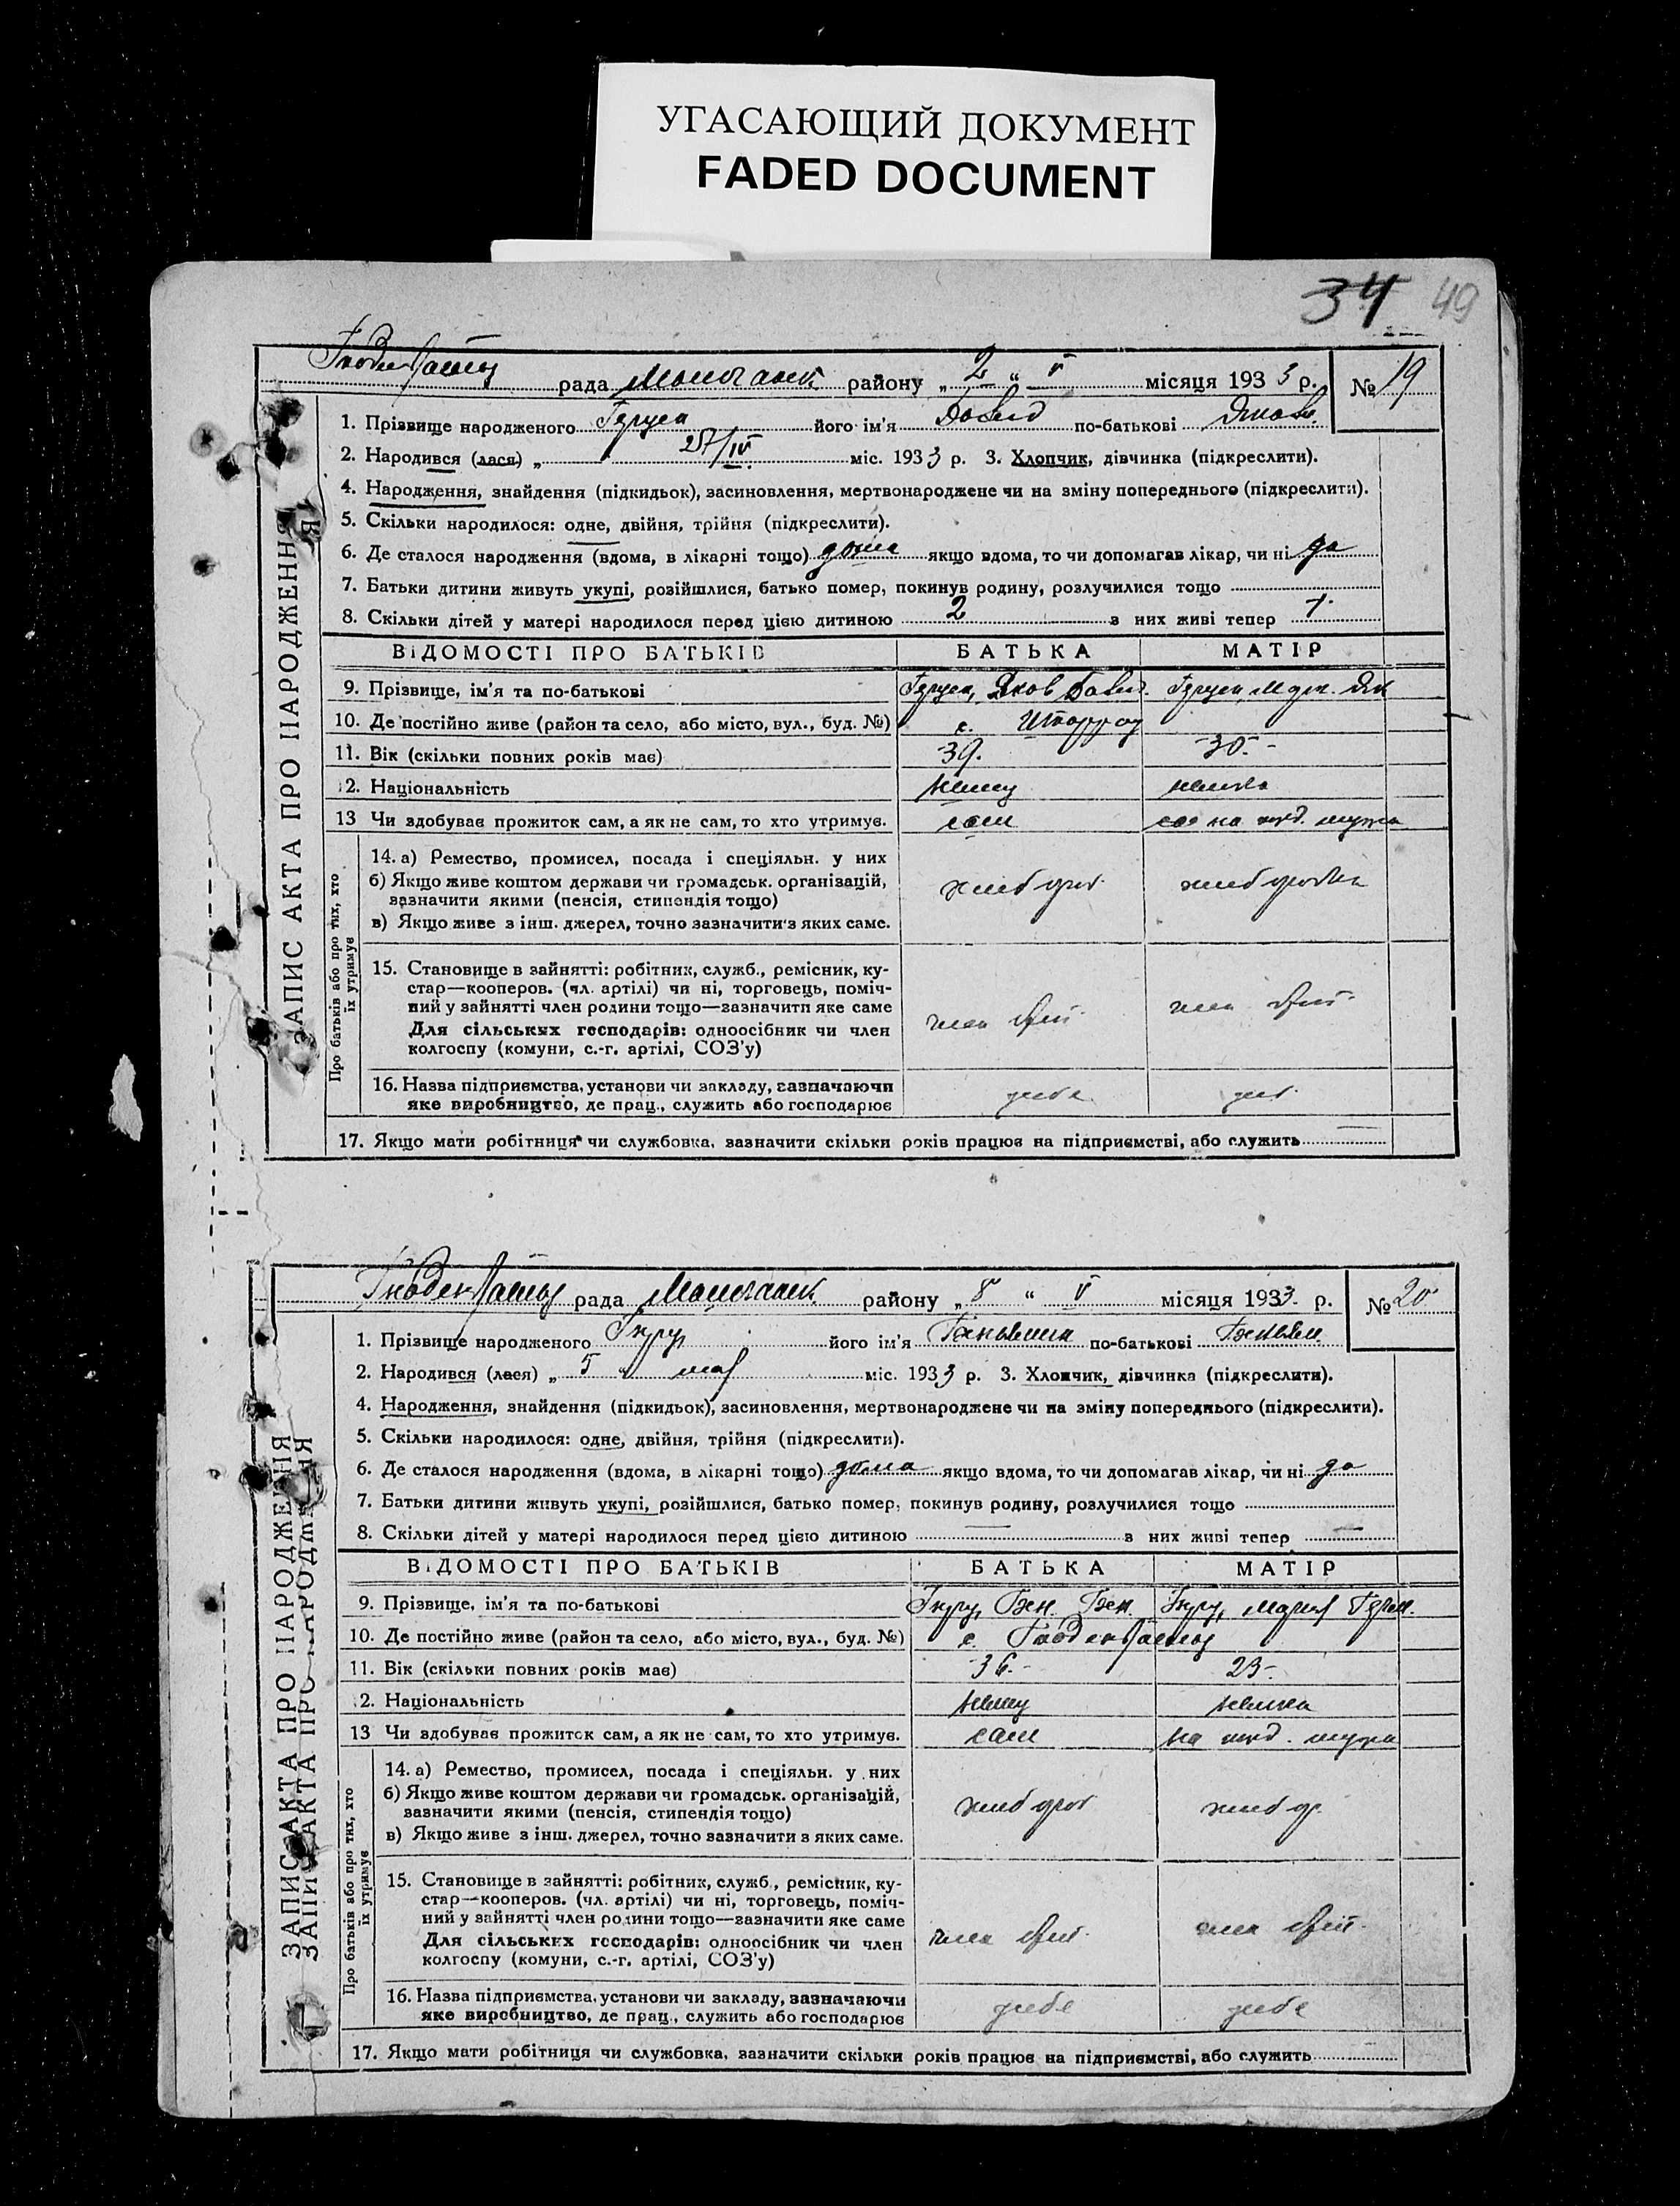 УГАСАЮЩИЙ ДОКУМЕНТ
FADED DOCUMENT
34 49
рада района „ 2 “ V місяця 1933 р. № 19
1. Прізвище народженого його ім'я Давид по-батькові
2. Народився (лася) „ 25/IV міс. 1933 р. 3. Хлопчик, дівчинка (підкреслити).
4. Народження, знайдення (підкидьок), засиновлення, мертвонароджене чи на зміну попереднього (підкреслити).
5. Скільки народилося: одне, двійня, трійня (підкреслити).
6. Де сталося народження (вдома, в лікарні тощо) дома якщо вдома, то чи допомагав лікар, чи ні да
7. Батьки дитини живуть укупі, розійшлися, батько помер, покинув родину, розлучилися тощо
8. Скільки дітей у матері народилося перед цією дитиною 2 з них живі тепер 1
ВІДОМОСТІ ПРО БАТЬКІВ БАТЬКА МАТІР
9. Прізвище, ім'я та по-батькові Яков Давид.
10. Де постійно живе (район та село, або місто, вул., буд. №) с.
11. Вік (скільки повних років має) 39. 30.
12. Національність немец немка
13 Чи здобуває прожиток сам, а як не сам, то хто утримує. сам на мужа
14. а) Ремество, промисел, посада і спеціяльн. у них
б) Якщо живе коштом держави чи громадськ. організацій, зазначити якими (пенсія, стипендія тощо)
в) Якщо живе з інш. джерел, точно зазначити з яких саме.
хлебороб хлеборобка
15. Становище в зайнятті: робітник, служб., ремісник, ку-
стар—кооперов. (чл. артілі) чи ні, торговець, поміч-
ний у зайнятті член родини тощо—зазначити яке саме
Для сільських господарів: одноосібник чи член
колгоспу (комуни, с.-г. артілі, СОЗ'у)
член член
16. Назва підприємства, установи чи закладу, зазначаючи
яке виробництво, де прац., служить або господарює
17. Якщо мати робітниця чи службовка, зазначити скільки років працює на підприємстві, або служить
ЗАПИС АКТА ПРО НАРОДЖЕННЯ
Про батьків або про тих, хто
їх утримує
рада району „ 8 “ V місяця 1933 р. № 20
1. Прізвище народженого його ім'я по-батькові
2. Народився (лася) „ 5 “ мая міс. 1933 р. 3. Хлопчик, дівчинка (підкреслити).
4. Народження, знайдення (підкидьок), засиновлення, мертвонароджене чи на зміну попереднього (підкреслити).
5. Скільки народилося: одне, двійня, трійня (підкреслити).
6. Де сталося народження (вдома, в лікарні тощо) дома якщо вдома, то чи допомагав лікар, чи ні да
7. Батьки дитини живуть укупі, розійшлися, батько помер, покинув родину, розлучилися тощо
8. Скільки дітей у матері народилося перед цією дитиною — з них живі тепер —
ВІДОМОСТІ ПРО БАТЬКІВ БАТЬКА МАТІР
9. Прізвище, ім'я та по-батькові Мария
10. Де постійно живе (район та село, або місто, вул., буд. №) с.
11. Вік (скільки повних років має) 36. 23.
12. Національність немец немка
13 Чи здобуває прожиток сам, а як не сам, то хто утримує. сам на мужа
14. а) Ремество, промисел, посада і спеціяльн. у них
б) Якщо живе коштом держави чи громадськ. організацій,
зазначити якими (пенсія, стипендія тощо)
в) Якщо живе з інш. джерел, точно зазначити з яких саме.
хлебороб хлебор.
15. Становище в зайнятті: робітник, служб., ремісник, ку-
стар—кооперов. (чл. артілі) чи ні, торговець, поміч-
ний у зайнятті член родини тощо—зазначити яке саме
Для сільських господарів: одноосібник чи член
колгоспу (комуни, с.-г. артілі, СОЗ'у)
член член
16. Назва підприємства, установи чи закладу, зазначаючи
яке виробництво, де прац., служить або господарює
17. Якщо мати робітниця чи службовка, зазначити скільки років працює на підприємстві, або служить
ЗАПИС АКТА ПРО НАРОДЖЕННЯ
ЗАПИС АКТА ПРО НАРОДЖЕННЯ
Про батьків або про тих, хто
їх утримує